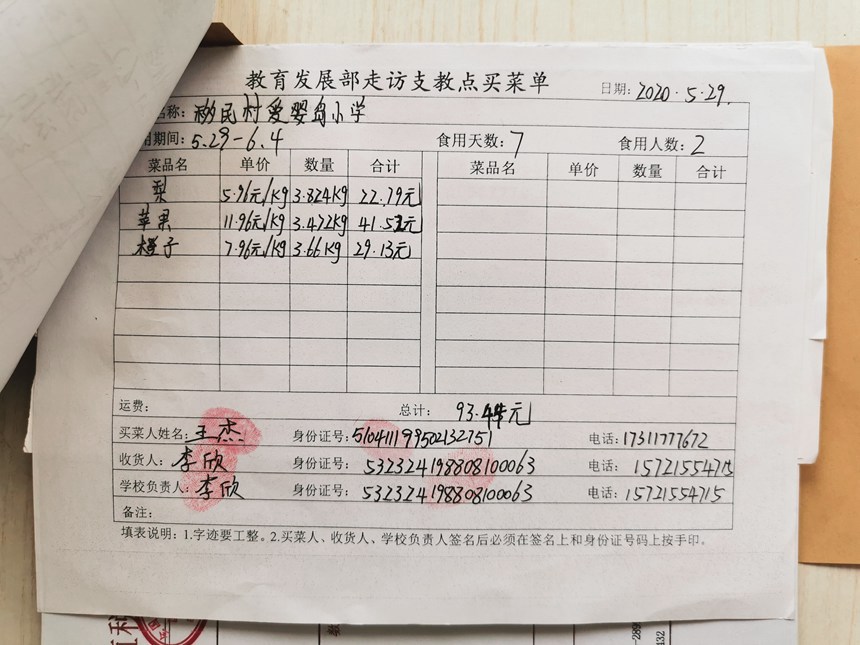 教育发展部走访支教点买菜单
日期: 2020.5.29.
名称: 移民村爱婴岛小学
用期间: 5.29-6.4 食用天数: 7 食用人数: 2
菜品名 单价 数量 合计 菜品名 单价 数量 合计
梨 5.96元/kg 3.824kg 22.79元
苹果 11.96元/kg 3.472kg 41.52元
橙子 7.96元/kg 3.66kg 29.13元
运费: 总计: 93.44元
买菜人姓名: 王杰 身份证号: 510411199502132751 电话: 17311777672
收货人: 李欣 身份证号: 532324198808100063 电话: 15721554715
学校负责人: 李欣 身份证号: 532324198808100063 电话: 15721554715
备注:
填表说明: 1.字迹要工整。2.买菜人、收货人、学校负责人签名后必须在签名上和身份证号码上按手印。